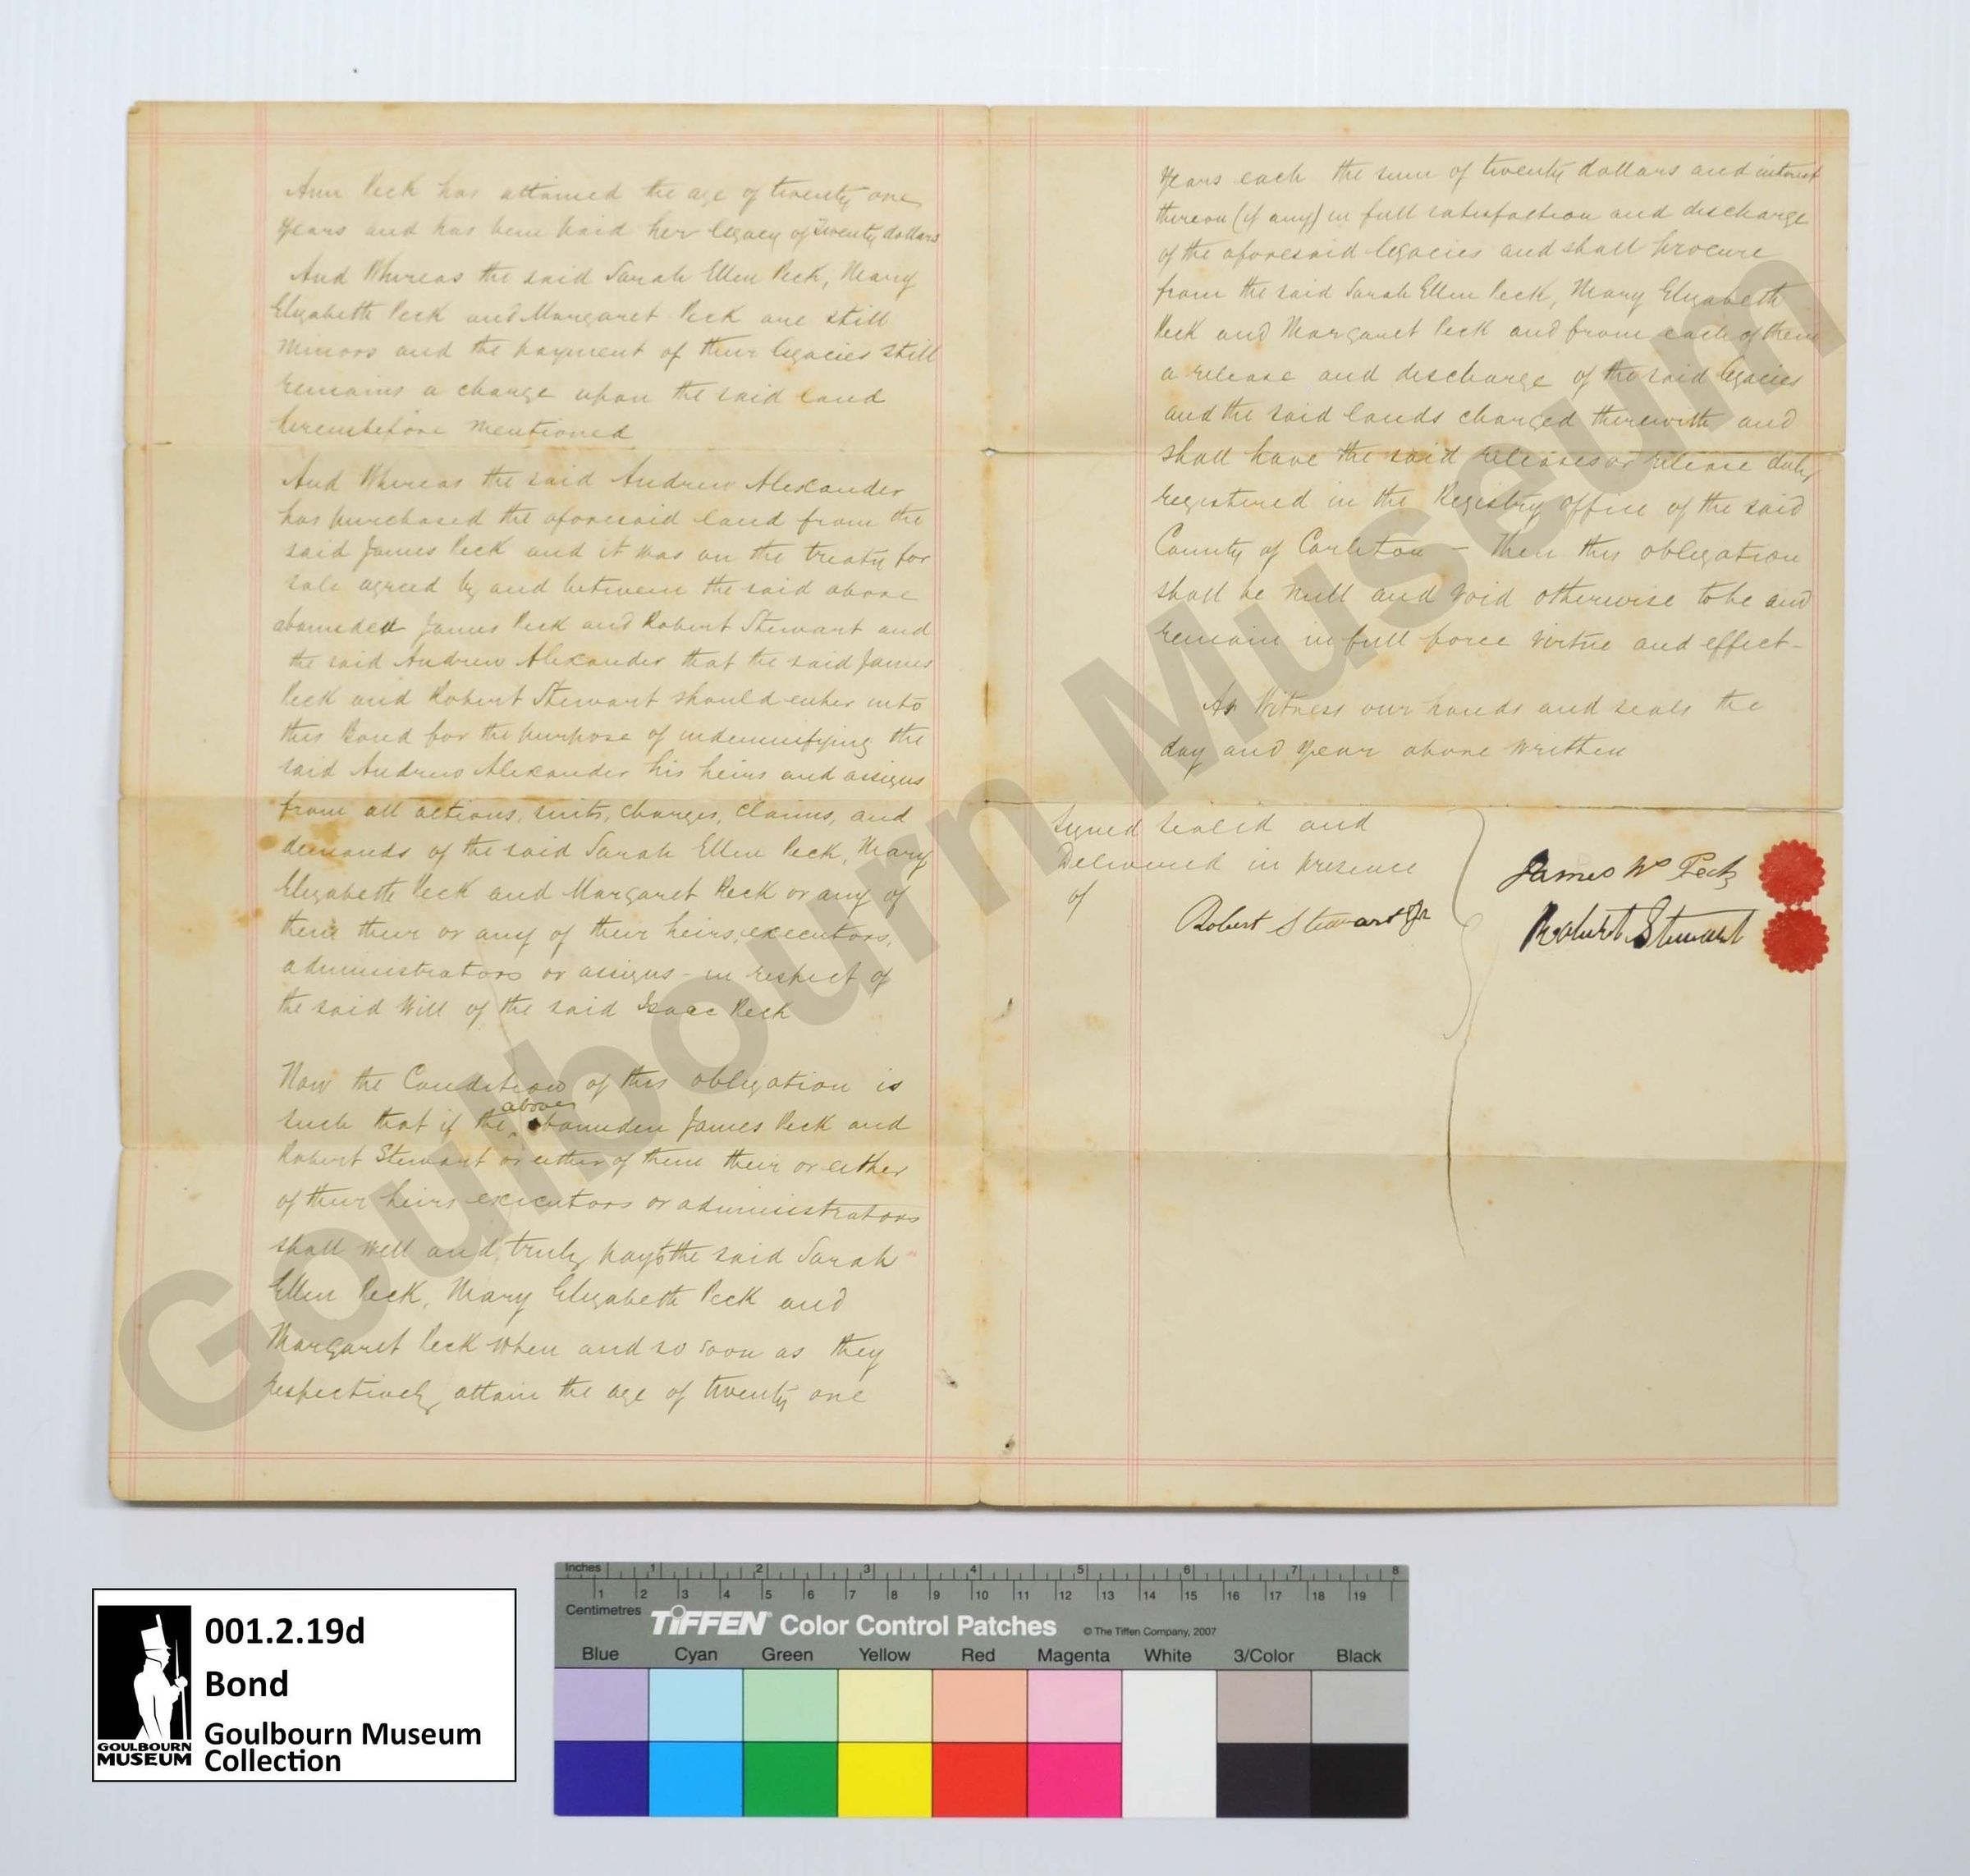 Ann Peck has attained the age of twenty one
years and has been paid her legacy of twenty dollars
And Whereas the said Sarah Ellen Peck, Mary
Elizabeth Peck and Margaret Peck are still
minors and the payment of their legacies still
remains a charge upon the said land
hereinbefore mentioned
And Whereas the said Andrew Alexander
has purchased the aforesaid land from the
said James Peck and it was on the treaty for
sale agreed by and between the said above
James Peck and Robert Stewart and
the said Andrew Alexander that the said James
Peck and Robert Stewart should enter into
this Bond for the purpose of indemnifying the
said Andrew Alexander his heirs and assigns
from all actions, suits, charges, claims, and
demands of the said Sarah Ellen Peck, Mary
Elizabeth Peck and Margaret Peck or any of
them their or any of their heirs, executors,
administrators or assigns - in respect of
the said Will of the said Isaac Peck
Now the Condition of this obligation is
such that if the above bounden James Peck and
Robert Stewart or either of them their or either
of their heirs executors or administrators
shall well and truly pay to the said Sarah
Ellen Peck, Mary Elizabeth Peck and
Margaret Peck when and so soon as they
respectively attain the age of twenty one
years each the sum of twenty dollars and interest
thereon (if any) in full satisfaction and discharge
of the aforesaid legacies and shall procure
from the said Sarah Ellen Peck, Mary Elizabeth
Peck and Margaret Peck and from each of them
a release and discharge of the said legacies
and the said lands charged therewith and
shall have the said releases or release duly
registered in the Registry office of the said
County of Carleton - Then this obligation
shall be null and void otherwise to be and
remain in full force virtue and effect -
As Witness our hands and seals the
day and year above written
Signed sealed and
Delivered in presence
of
Robert Stewart Jr
James Wm Peck
Robert Stewart
Goulbourn Museum
001.2.19d
Bond
Goulbourn Museum
Collection
GOULBOURN
MUSEUM
Inches 1 2 3 4 5 6 7 8
1 2 3 4 5 6 7 8 9 10 11 12 13 14 15 16 17 18 19
Centimetres
TIFFEN Color Control Patches © The Tiffen Company, 2007
Blue Cyan Green Yellow Red Magenta White 3/Color Black